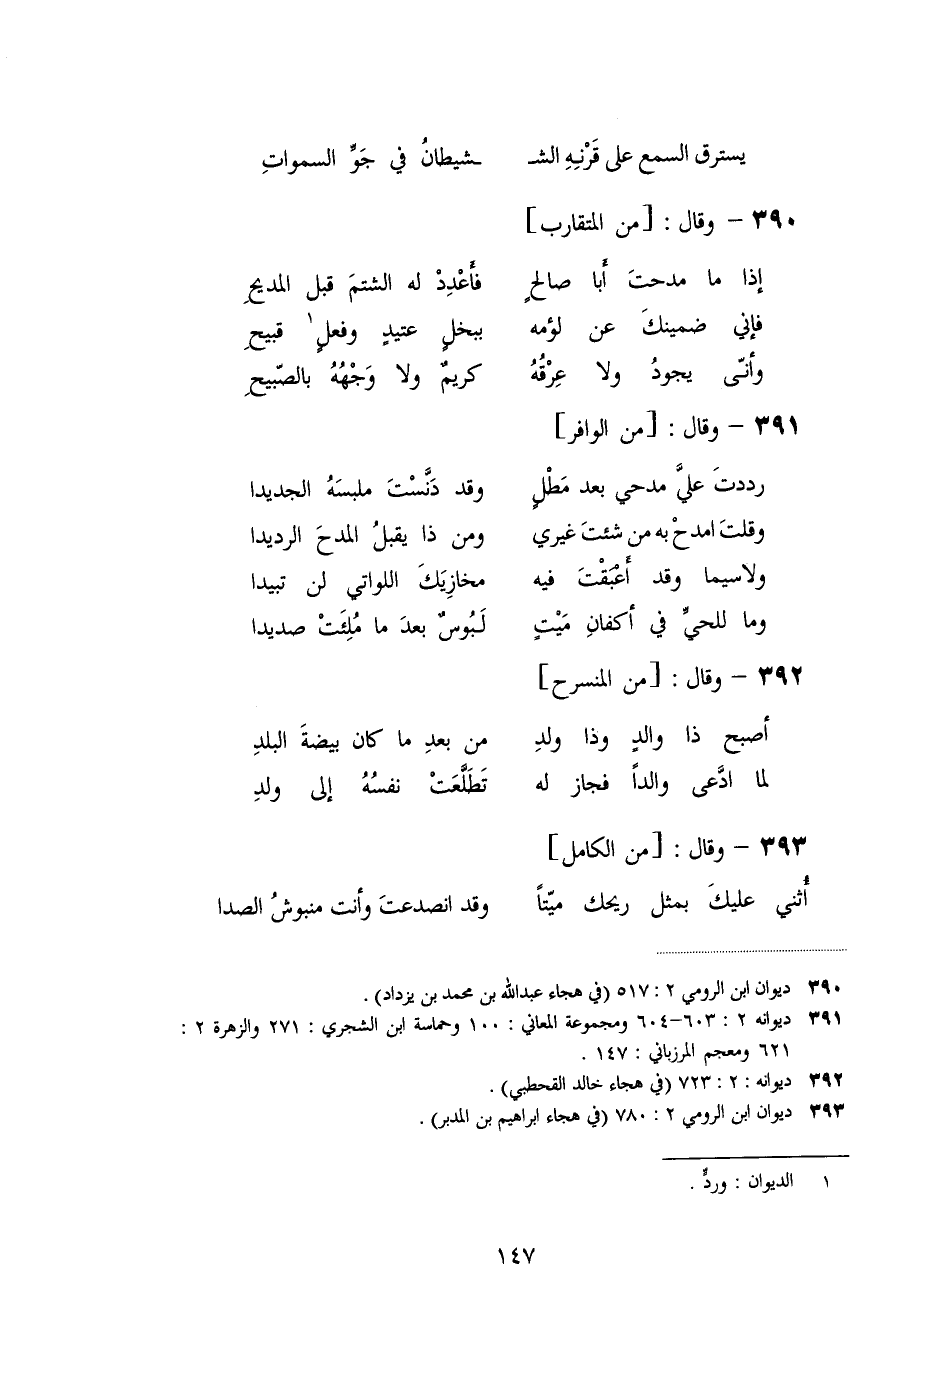 يسترق السمع على قَرْنِهِ الشـ ـشيطانُ في جَوِّ السمواتِ
٣٩٠ – وقال : [من المتقارب]
إذا ما مدحتَ أبا صالحٍ فأَعْدِدْ له الشتمَ قبل المديحِ
فإني ضمينكَ عن لؤمه ببخلٍ عتيدٍ وفعلٍ١ قبيحِ
وأنّى يجودُ ولا عِرْقُهُ كريمٌ ولا وَجْهُهُ بالصّبيحِ
٣٩١ – وقال : [من الوافر]
رددتَ عليَّ مدحي بعد مَطْلٍ وقد دَنَّسْتَ ملبسَهُ الجديدا
وقلتَ امدحْ به من شئتَ غيري ومن ذا يقبلُ المدحَ الرديدا
ولاسيما وقد أَعْبَقْتَ فيه مخازِيَكَ اللواتي لن تبيدا
وما للحيِّ في أكفانِ مَيْتٍ لَبُوسٌ بعدَ ما مُلِئَتْ صديدا
٣٩٢ – وقال : [من المنسرح]
أصبح ذا والدٍ وذا ولدِ من بعدِ ما كان بيضةَ البلدِ
لما ادَّعى والداً فجاز له تَطَلَّعَتْ نفسُهُ إلى ولدِ
٣٩٣ – وقال : [من الكامل]
أُثني عليكَ بمثل ريحك ميّتاً وقد انصدعتَ وأنت منبوشُ الصدا
٣٩٠ ديوان ابن الرومي ٢ : ٥١٧ (في هجاء عبدالله بن محمد بن يزداد) .
٣٩١ ديوانه ٢ : ٦٠٣–٦٠٤ ومجموعة المعاني : ١٠٠ وحماسة ابن الشجري : ٢٧١ والزهرة ٢ :
٦٢١ ومعجم المرزباني : ١٤٧ .
٣٩٢ ديوانه : ٢ : ٧٢٣ (في هجاء خالد القحطبي) .
٣٩٣ ديوان ابن الرومي ٢ : ٧٨٠ (في هجاء ابراهيم بن المدبر) .
١ الديوان : وردٍّ .
١٤٧